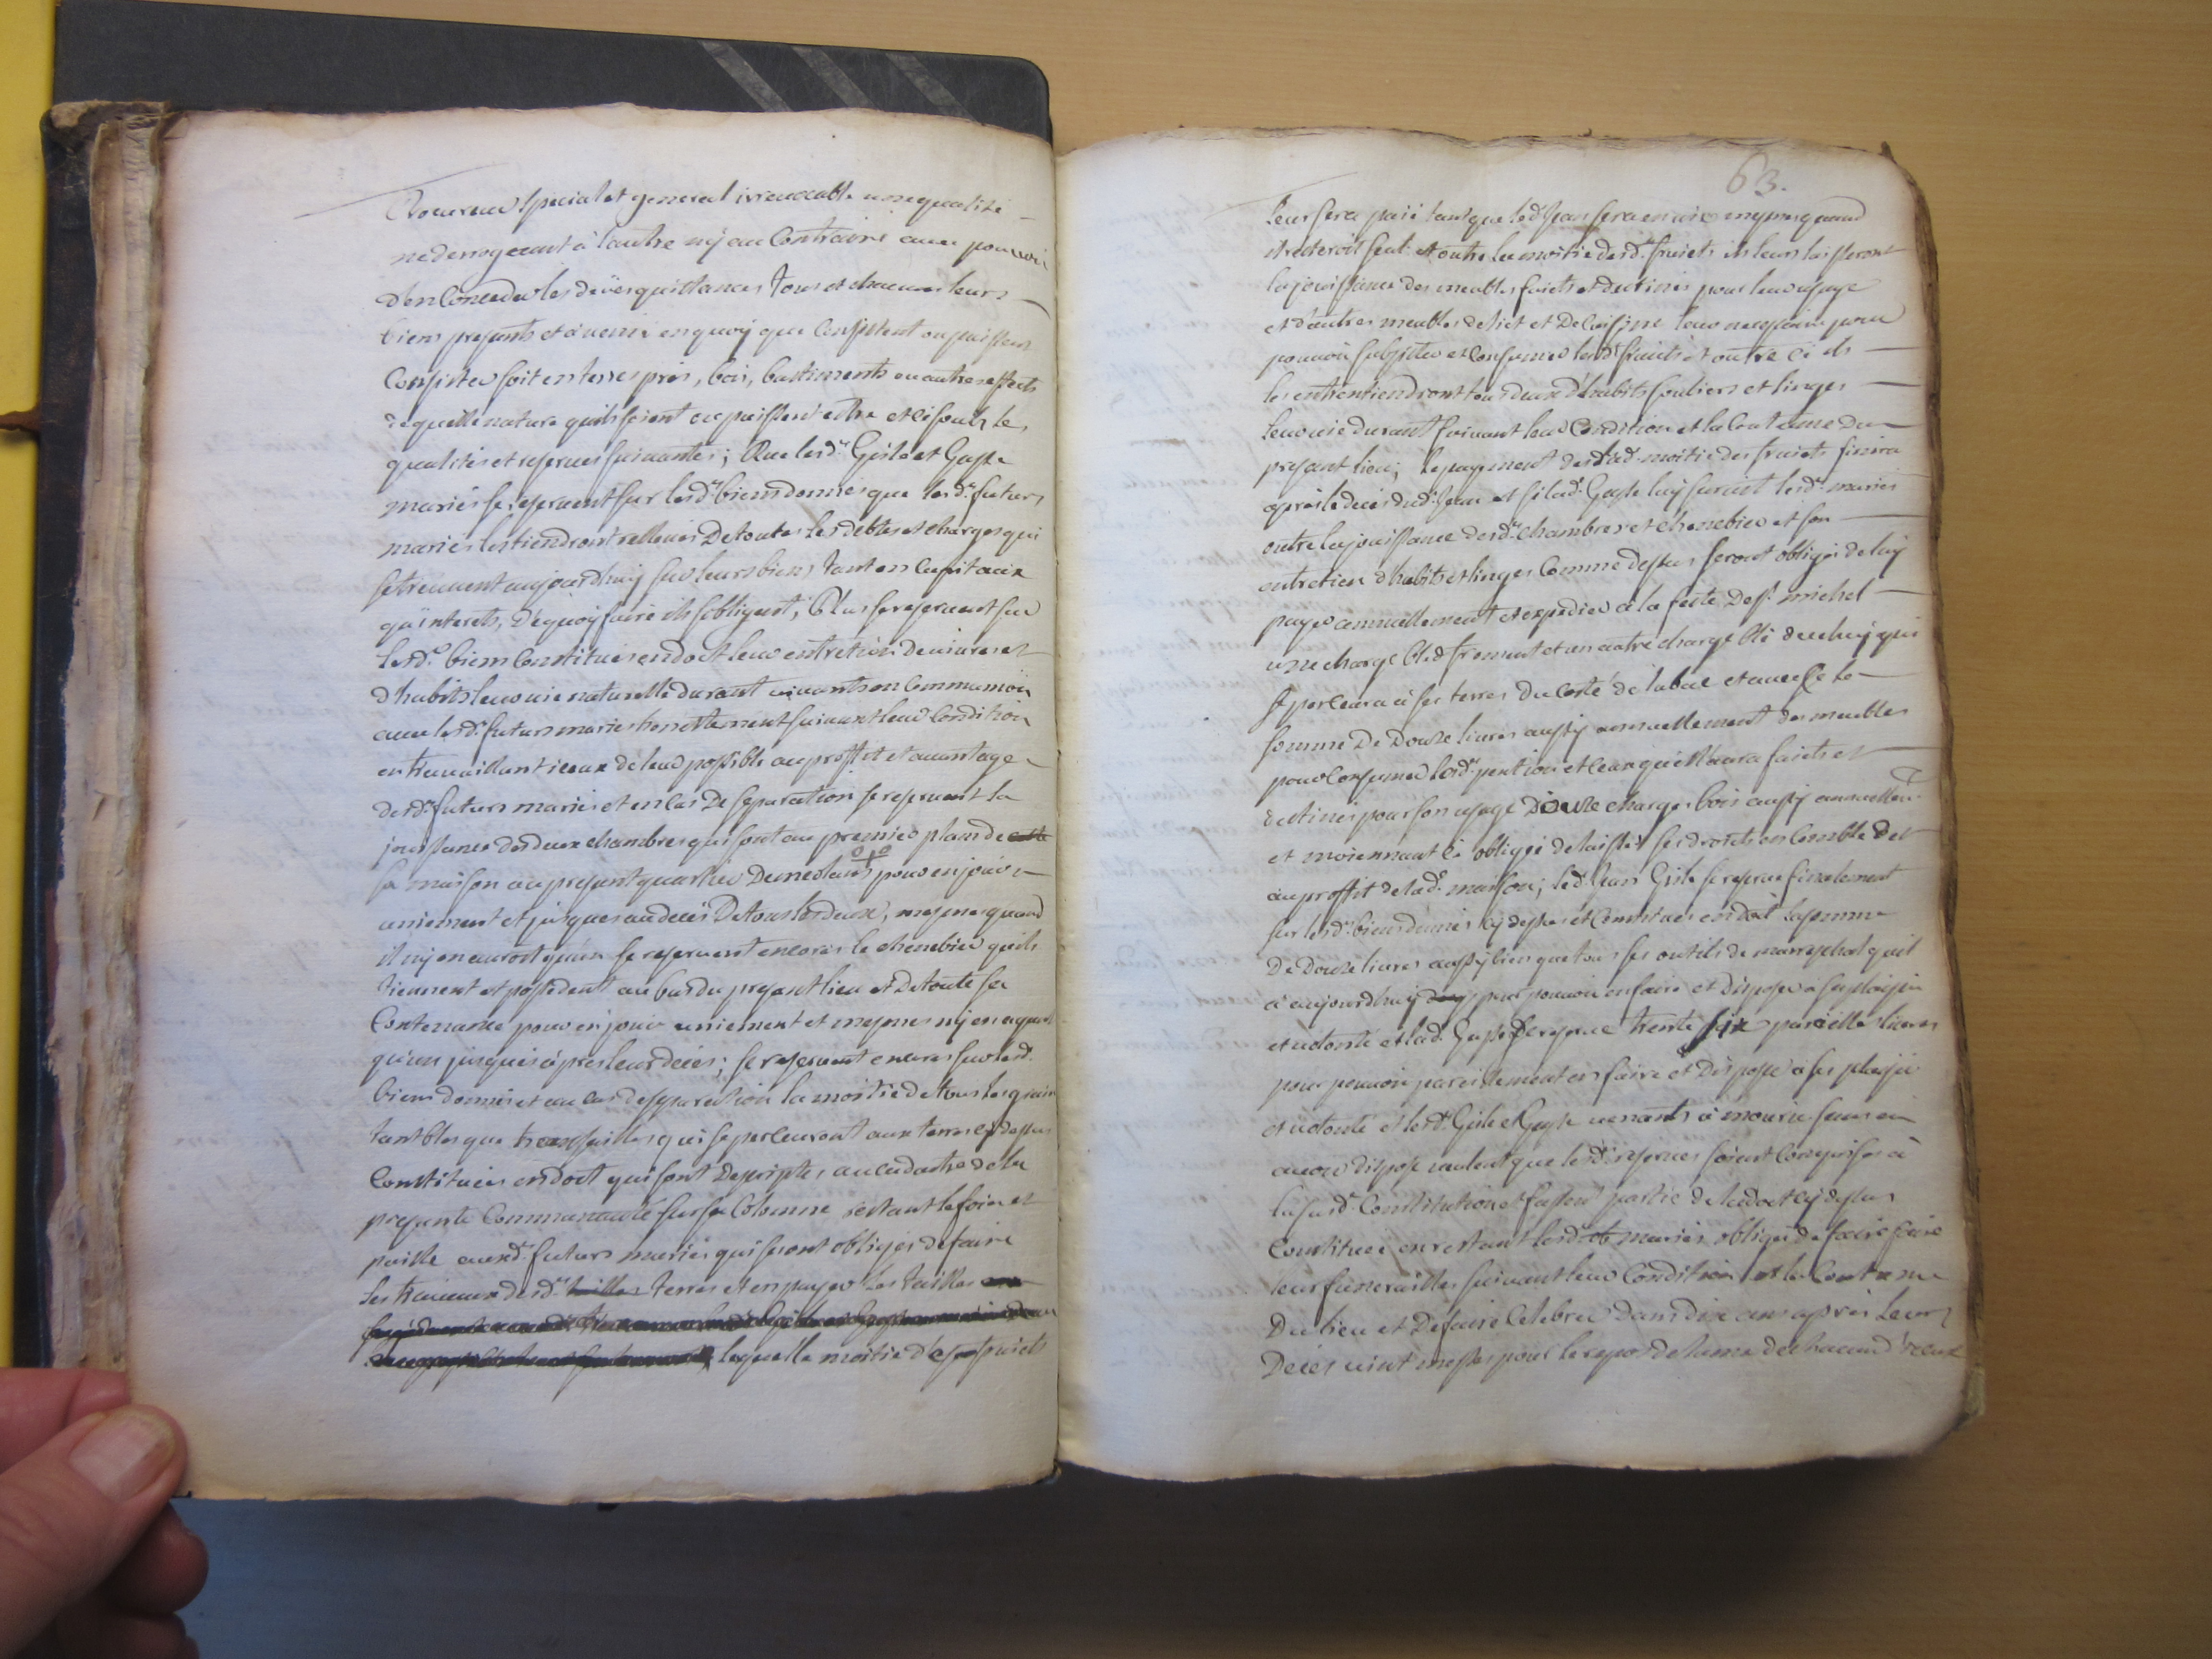 Procureur special et general irrevocable une qualité
ne derrogeant à l'autre ny au Contraire avec pouvoir
d'en Conceder les deües quittances tous et chacuns leurs
biens presents et avenir en quoy que Consistent ou puissent
Consister soit en terres prés, bois, bastiments ou autres effects
de quelle nature quils soient ou puissent estre et ci soubz les
qualités et reserves suivantes; Que lesd. Gisle et Gaste
mariés se reservent sur lesd. biens donnés que lesd. futurs
mariés les tiendront rellevés De toutes les debtes et charges qui
se treuvent aujourdhuy sur leurs biens tant en Capitaux
qu'interets, De quoy faire ils s'obligent; Plus se reservent sur
lesd. biens Constitués en dot leur entretien De vivres et
d'habits leur vie naturelle durant vivants en Communion
avec lesd. futurs mariés honnettement suivant leur Condition
en travaillant iceux de leur possible au proffit et avantage
desd. futurs mariés et en cas De separation se reservent la
jouissance des deux chambres qui sont au premier plan de cette
sa maison au present quartier pour en jouir
uniement et jusques au decés De tous les deux, mesmes quand
il ny en auroit qu'un se reservent encores le chenebier quils
tiennent et possedent au bas du present lieu et De toute sa
Contenance pour en jouir uniement et mesmes ny en ayant
qu'un jusques àprés leur decés; se reservent encores sur lesd.
biens donnés et au cas de separation la moitié de tous les grains
tant bles que transailles qui se perceuront aux terres cy dessus
Constituées en dot qui sont descriptes au cadastre de la
presente Communauté sur sa Colomne restant le foin et
paille auxd. futurs mariés qui seront obligés de faire
les travaux desd. tailles terres et en payer les tailles
laquelle moitié d fruicts
63.
leur sera paié tant que led. Jean sera en vie mesmes quand
il resteroit seul. et outre la moitié desd. fruicts ils leurs laisseront
la jouissance des meubles faicts et destinés pour leur usage
et d'autres meubles de lict et De Cuisine leur necessaire pour
pouvoir subsister et Consumer lesd. fruicts et outre ci ils
les entretiendront tous deux d'habits souliers et linges
leur vie durant suivant leur Condition et la Coutume Du
present lieu; le payement de lad. moitié des fruicts finira
aprés le decés dud. Jean et si lad. Gaste luy survit lesd. mariés
outre la jouissance desd. chambres et chenebier et son
entretien d'habits et linges Comme dessus seront obligés de luy
payer annuellement et expedier à la feste De St. michel
une charge bled froment et un autre charge blé de celuy qui
se perceura à ses terres Du Costé de et avec Ce la
somme De Douze livres aussy annuellement des meubles
pour Consumer lesd. pention et ceux qu'elle aura faicts et
destinés pour son usage Douze charges bois aussy annuellem.t
et moiennant Ci obligée de laisser ses droits en Comble Det
au proffit de lad. maison; led. Jean Gisle se reserve finalement
sur lesd. biens donnés cy dessus et Constitués en dot la somme
De Douze livres aussy bien que tous ses outils de mareschal quil
a aujourdhuy pour pouvoir en faire et Disposer à son plaisir
et volonté et lad. Gaste se reserve trente six pareilles livres
pour pouvoir pareillement en faire et Disposer à ses plaisir
et volonté et lesd. Gisle et Gaste venants à mourir sans en
avoir disposé veulent que lesd. reserves soient Comprises à
la susd. Constitution et fassent partie de la dot cy dessus
Constituée en restant lesd. mariés obligés de faire faire
leur funerailles suivant leur Condition et la Coutume
Du lieu et De faire Celebrer Dans dix ans aprés leurs
Decés vint messes pour le repos de l'ame de chacun d'iceux